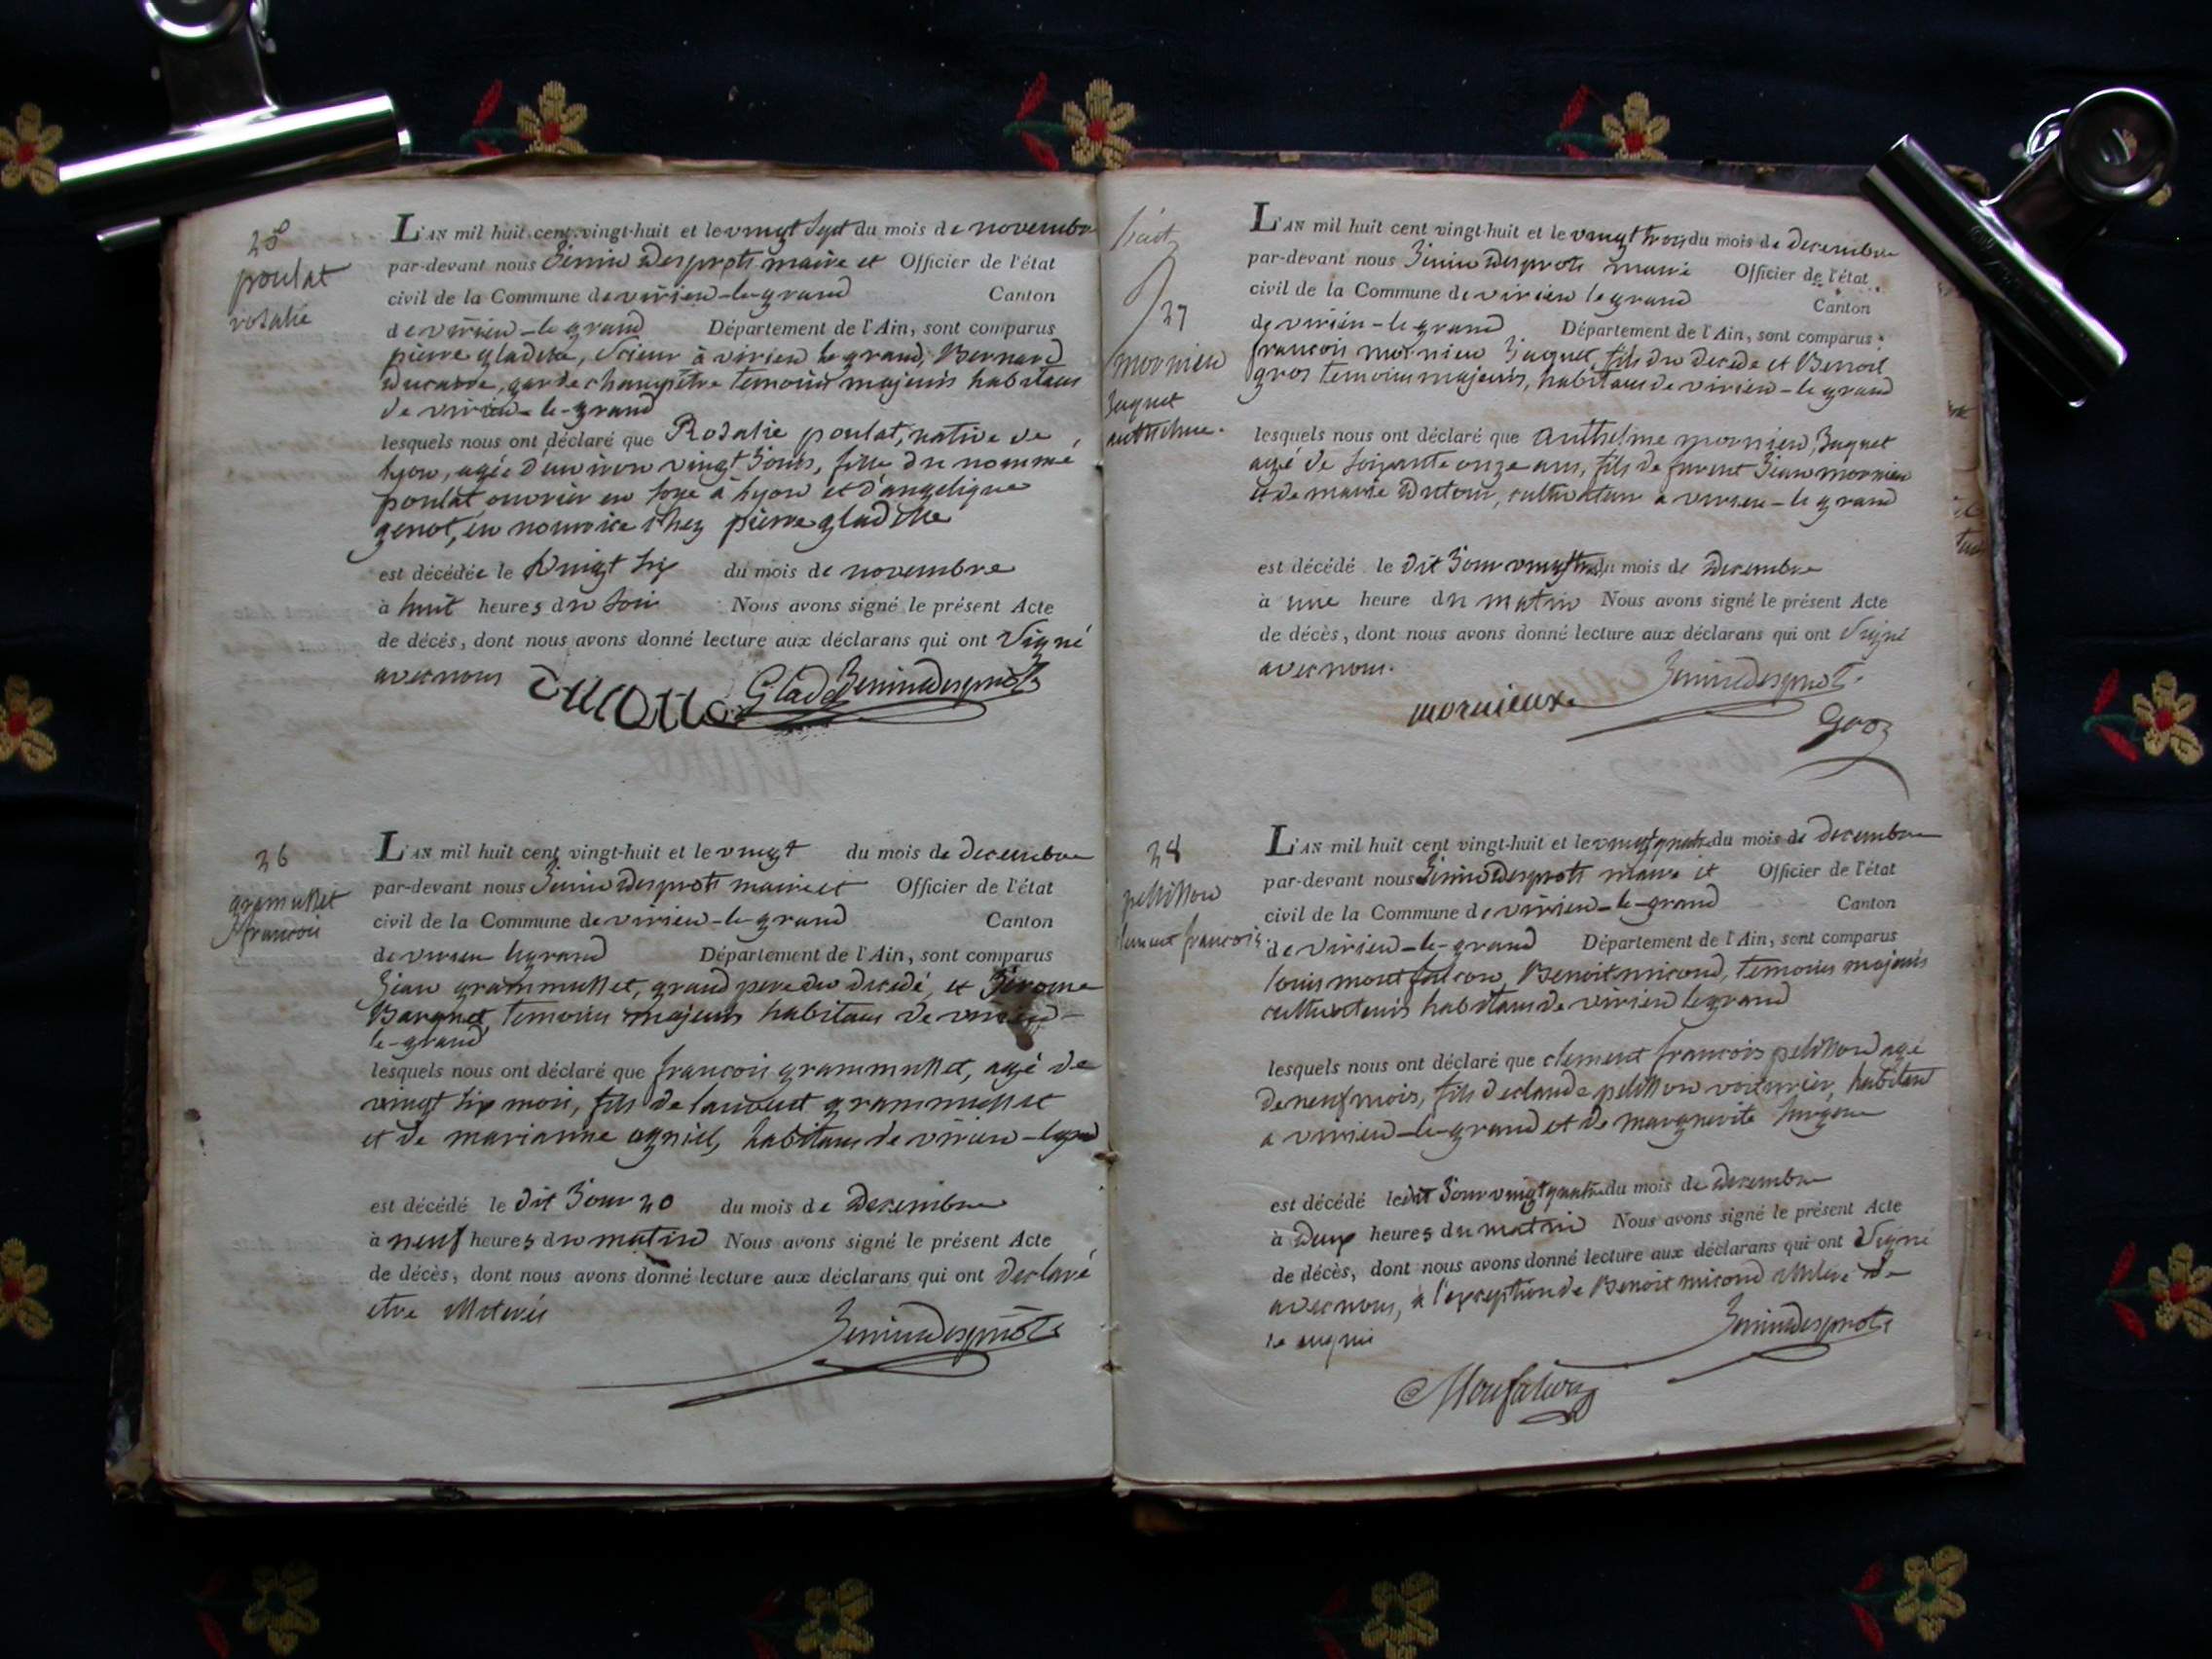 25
poulat
rosalie
L'AN mil huit cent vingt-huit et le vingt sept du mois de novembre
par-devant nous Jenin Desprots maire et Officier de l'état
civil de la Commune de virieu-le-grand Canton
de virieu-le grand Département de l'Ain, sont comparus
pierre gladette, Scieur à virieu le grand, Bernard
Ducarre, garde champêtre temoins majeurs habitans
de virieu-le-grand
lesquels nous ont déclaré que Rosalie poulat, native de
lyon, agée d'environ vingt Jours, fille du nommé
poulat, ouvrier en soye à lyon et d'angelique
genot, en nourrice chez pierre gladette
est décédée le vingt six du mois de novembre
à huit heures du soir Nous avons signé le présent Acte
de décés, dont nous avons donné lecture aux déclarans qui ont signé
avec nous
Jenin Desprots
26
grammusset
françois
L'AN mil huit cent vingt-huit et le vingt du mois de decembre
par-devant nous Jenin Desprots maire et Officier de l'état
civil de la Commune de virieu-le-grand Canton
de virieu legrand Département de l'Ain, sont comparus
Jean grammusset, grand pere du decedé, et Jerome
temoins majeurs habitans de virieu-
le-grand
lesquels nous ont déclaré que francois grammusset, agé de
vingt six mois, fils de laurent grammusset
et de marianne agniel, habitans de virieu-legrand
est décédé le dit Jour 20 du mois de Decembre
à neuf heures du matin Nous avons signé le présent Acte
de décès, dont nous avons donné lecture aux déclarans qui ont declaré
etre illiterés
Jenin Desprots
27
mornieu
Jaquet
anthelme.
L'AN mil huit cent vingt-huit et le vingt trois du mois de decembre
par-devant nous Jenin Desprots maire Officier de l'état
civil de la Commune de virieu le grand Canton
de virieu-le grand Département de l'Ain, sont comparus
francois mornieu Jaquet, fils du decedé et Benoit
gros temoins majeurs, habitans de virieu-le grand
lesquels nous ont déclaré que Anthelme mornieu, Jaquet
agé de soixante onze ans, fils de furent Jean mornieu
et de marie Dutour, cultivateur a virieu-le grand
est décédé le dit Jour vingt trois du mois de Decembre
à une heure du matin Nous avons signé le présent Acte
de décès, dont nous avons donné lecture aux déclarans qui ont signé
avec nous.
Jenin Desprots
mornieux
Gros
28
pellisson
clement francois.
L'AN mil huit cent vingt-huit et le vingt quatre du mois de decembre
par-devant nous Jenin Desprots maire et Officier de l'état
civil de la Commune de virieu-le-grand Canton
de virieu-le-grand Département de l'Ain, sont comparus
louis montfalcon, Benoit micoud, temoins majeurs
cultivateurs habitans de virieu legrand
lesquels nous ont déclaré que clement francois pelisson agé
de neuf mois, fils de claude pelisson voiturier, habitant
a virieu-le-grand et de marguerite
est décédé le dit Jour vingt quatre du mois de decembre
à Deux heures du matin Nous avons signé le présent Acte
de décès, dont nous avons donné lecture aux déclarans qui ont signé
avec nous, a l'exception de Benoit micoud illiteré de
ce enquis
Jenin Desprots
Monfalcon